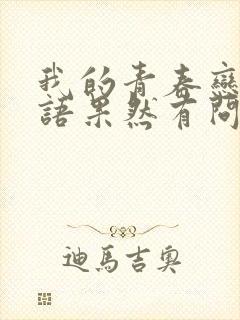 我的青春戀
語果然有問
迪馬吉奧